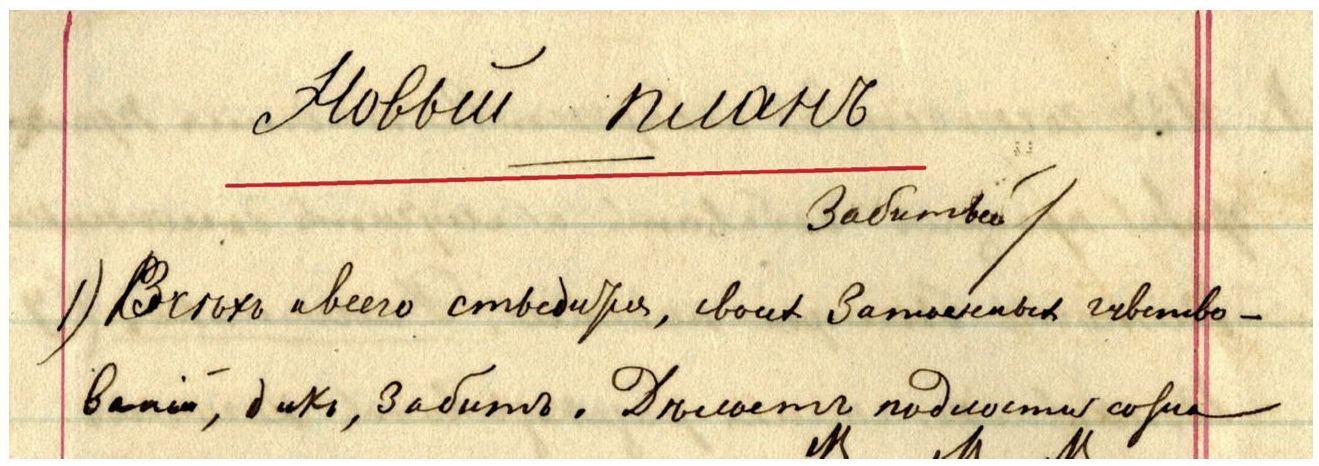 Новый планъ
Забитый
1) Всѣхъ и всего стыдится, своихъ затаенныхъ чувство-
ваній, дикъ, забитъ. Дѣлаетъ подлости созна